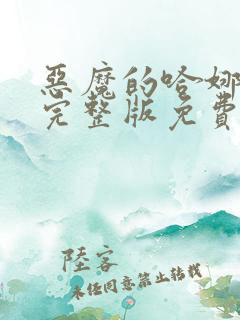 惡魔的哈娜
完整版免費
陸客
未经同意禁止转载